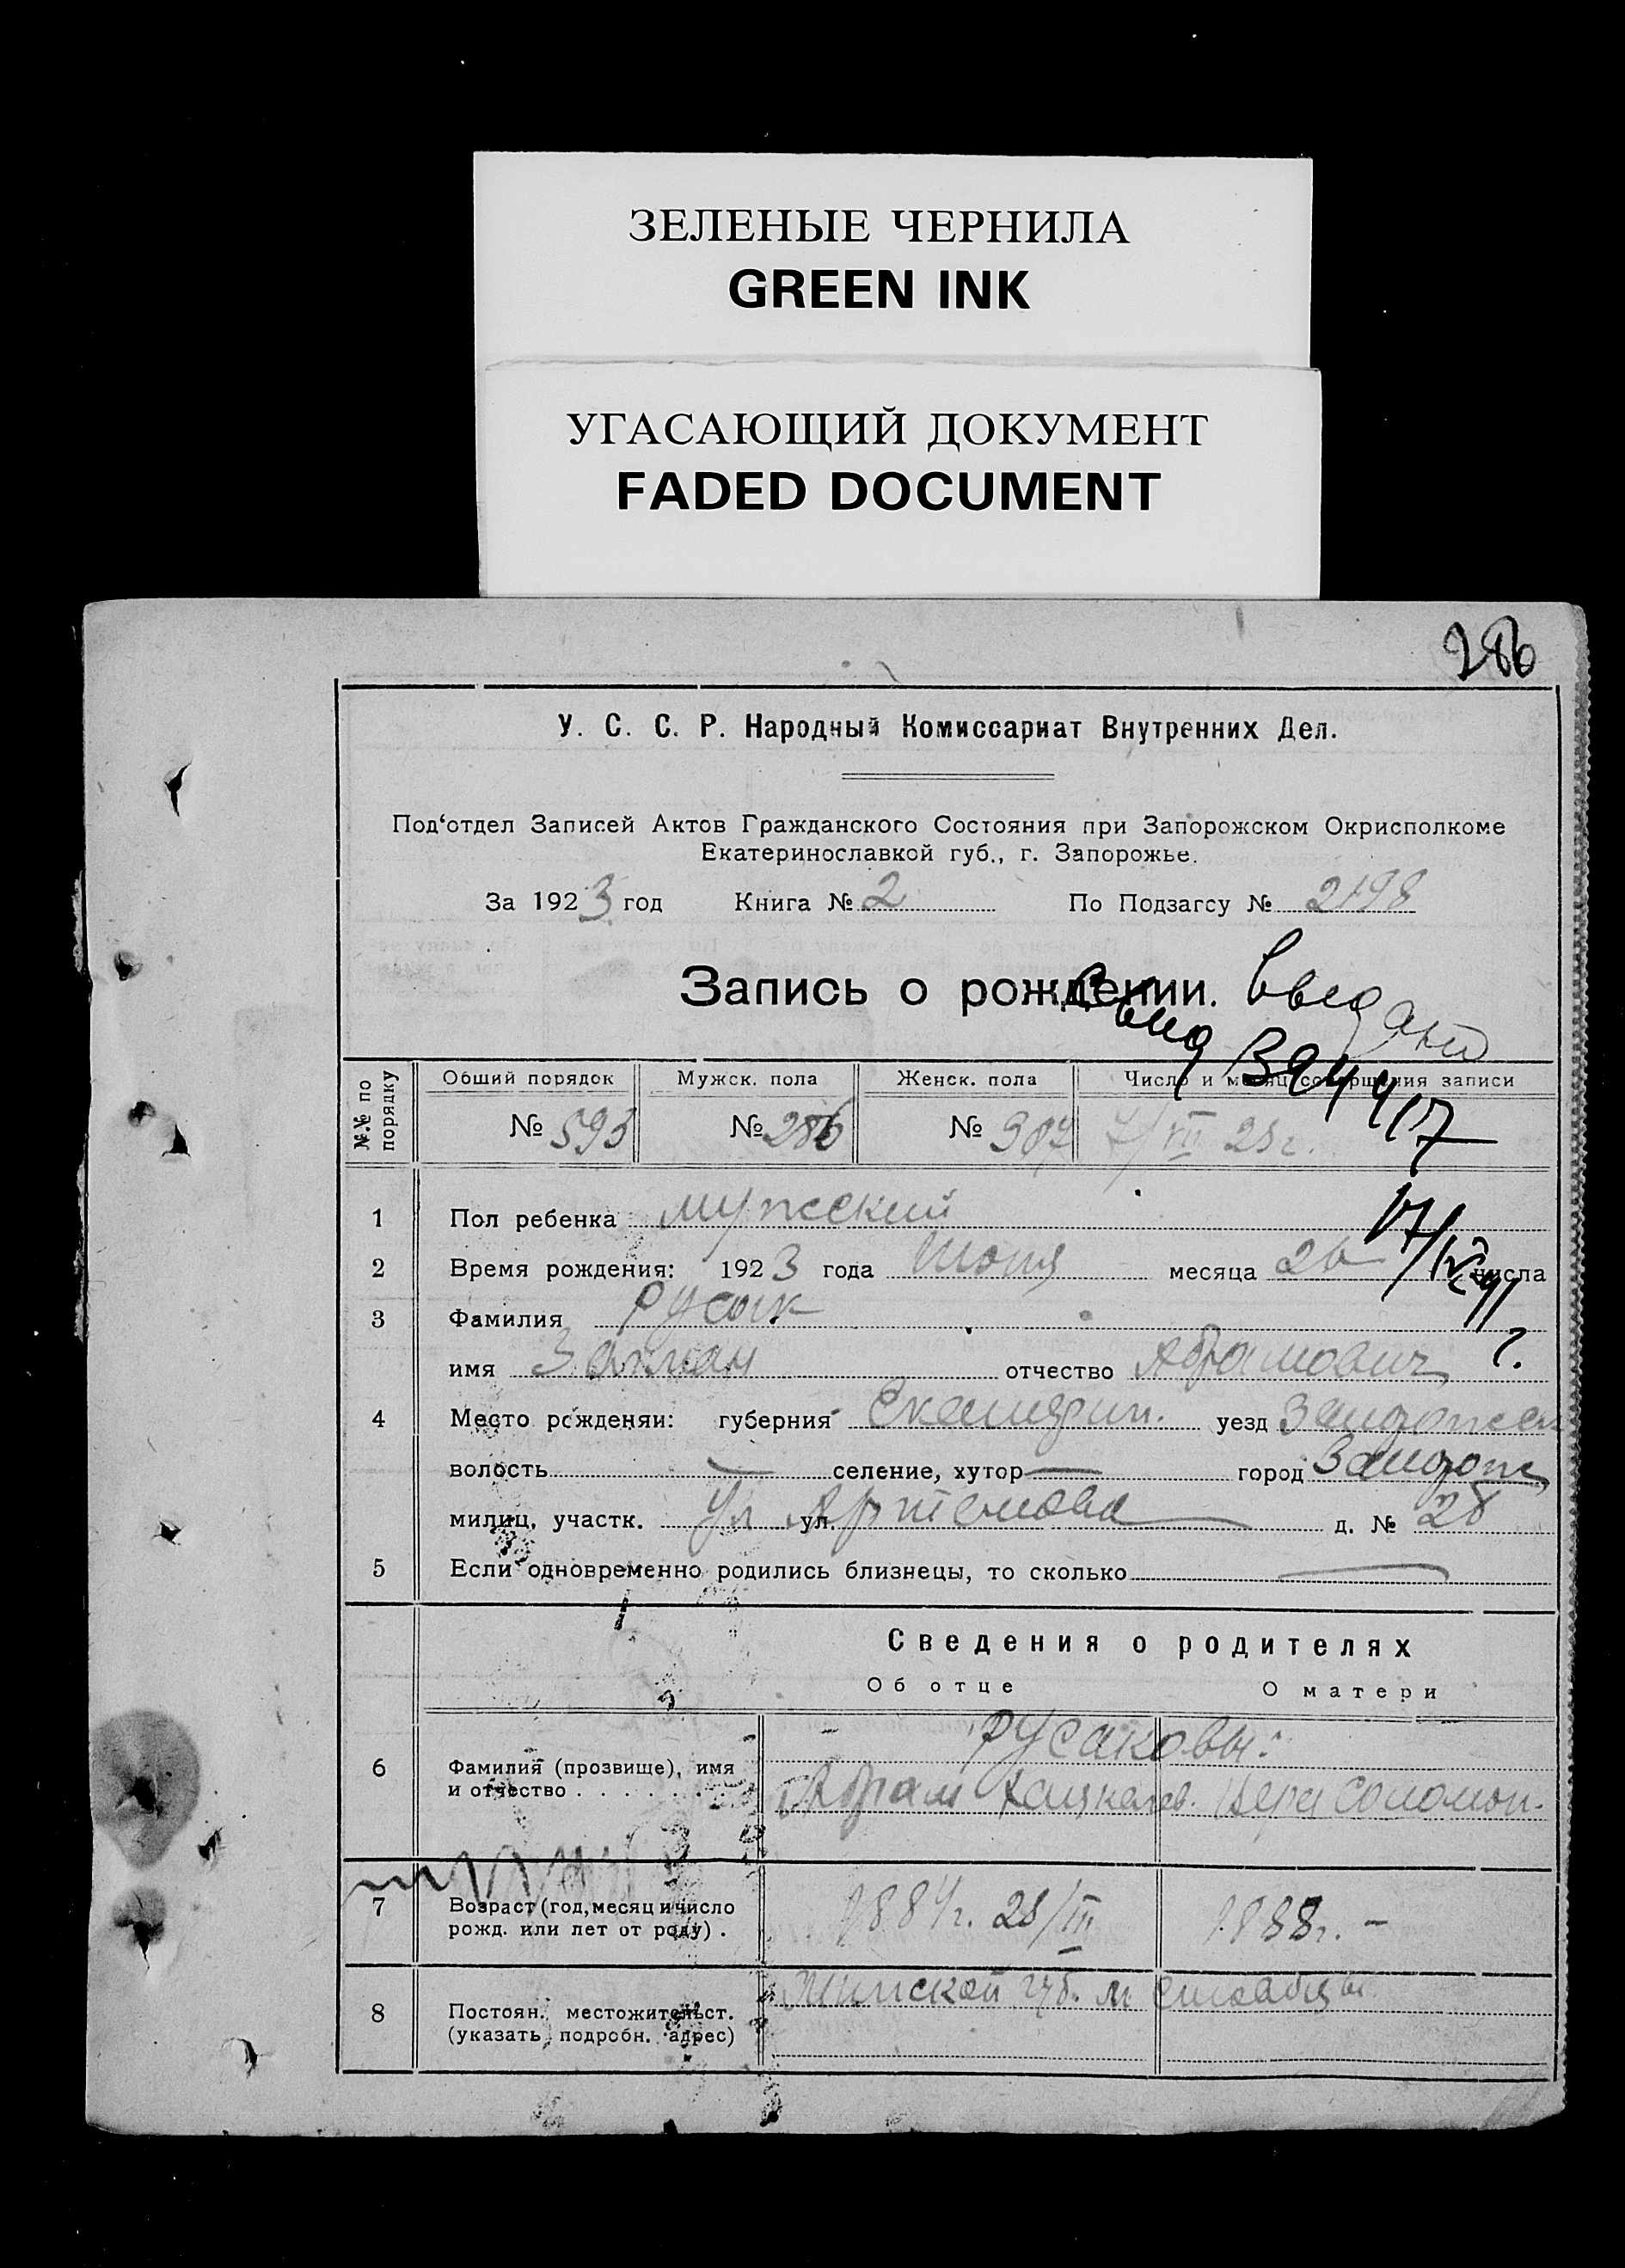 ЗЕЛЕНЫЕ ЧЕРНИЛА
GREEN INK
УГАСАЮЩИЙ ДОКУМЕНТ
FADED DOCUMENT
286
У. С. С. Р. Народный Комиссариат Внутренних Дел.
Под‘отдел Записей Актов Гражданского Состояния при Запорожском Окрисполкоме
Екатеринославкой губ., г. Запорожье.
За 1923 год Книга № 2 По Подзагсу № 2198
Запись о рождении.
№.№ по порядку
Общий порядок Мужск. пола Женск. пола Число и месяц совершения записи
№ 593 № 286 № 307 7/VII 23 г.
1 Пол ребенка мужеский
2 Время рождения: 1923 года Июня месяца 26 числа
17/IV 41 г.
3 Фамилия Русак
имя Залман отчество Абрамович
4 Место рожденяи: губерния уезд Запорож
волость — селение, хутор — город Запорож
милиц. участк. ул ул. Артемова д. № 28
5 Если одновременно родились близнецы, то сколько —
Сведения о родителях
Об отце О матери
6 Фамилия (прозвище), имя и отчество . . . . . . .
Русаковы:
Абрам Хацкелев. Вера Соломон.
7 Возраст (год, месяц и число рожд. или лет от роду) .
1884 г. 23/III 1888 г. —
8 Постоян. местожительст. (указать подробн. адрес)
Минской губ. м Столбцы